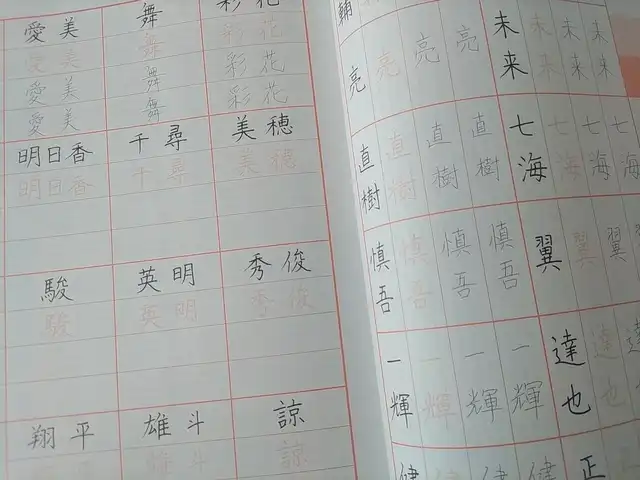 愛美 舞 彩花
愛美 舞 彩花
愛美 舞 彩花
愛美 舞 彩花
明日香 千尋 美穂
明日香 千尋 美穂
駿 英明 秀俊
駿 英明 秀俊
翔平 雄斗 諒
雄斗 諒
輔
亮 亮 亮 亮
未来 未来 未来 未来
直樹 直樹 直樹 直樹
七海 七海 七海 七海
慎吾 慎吾 慎吾 慎吾
翼 翼 翼 翼
一輝 一輝 一輝 一輝
達也 達也 達
健 健 健
正